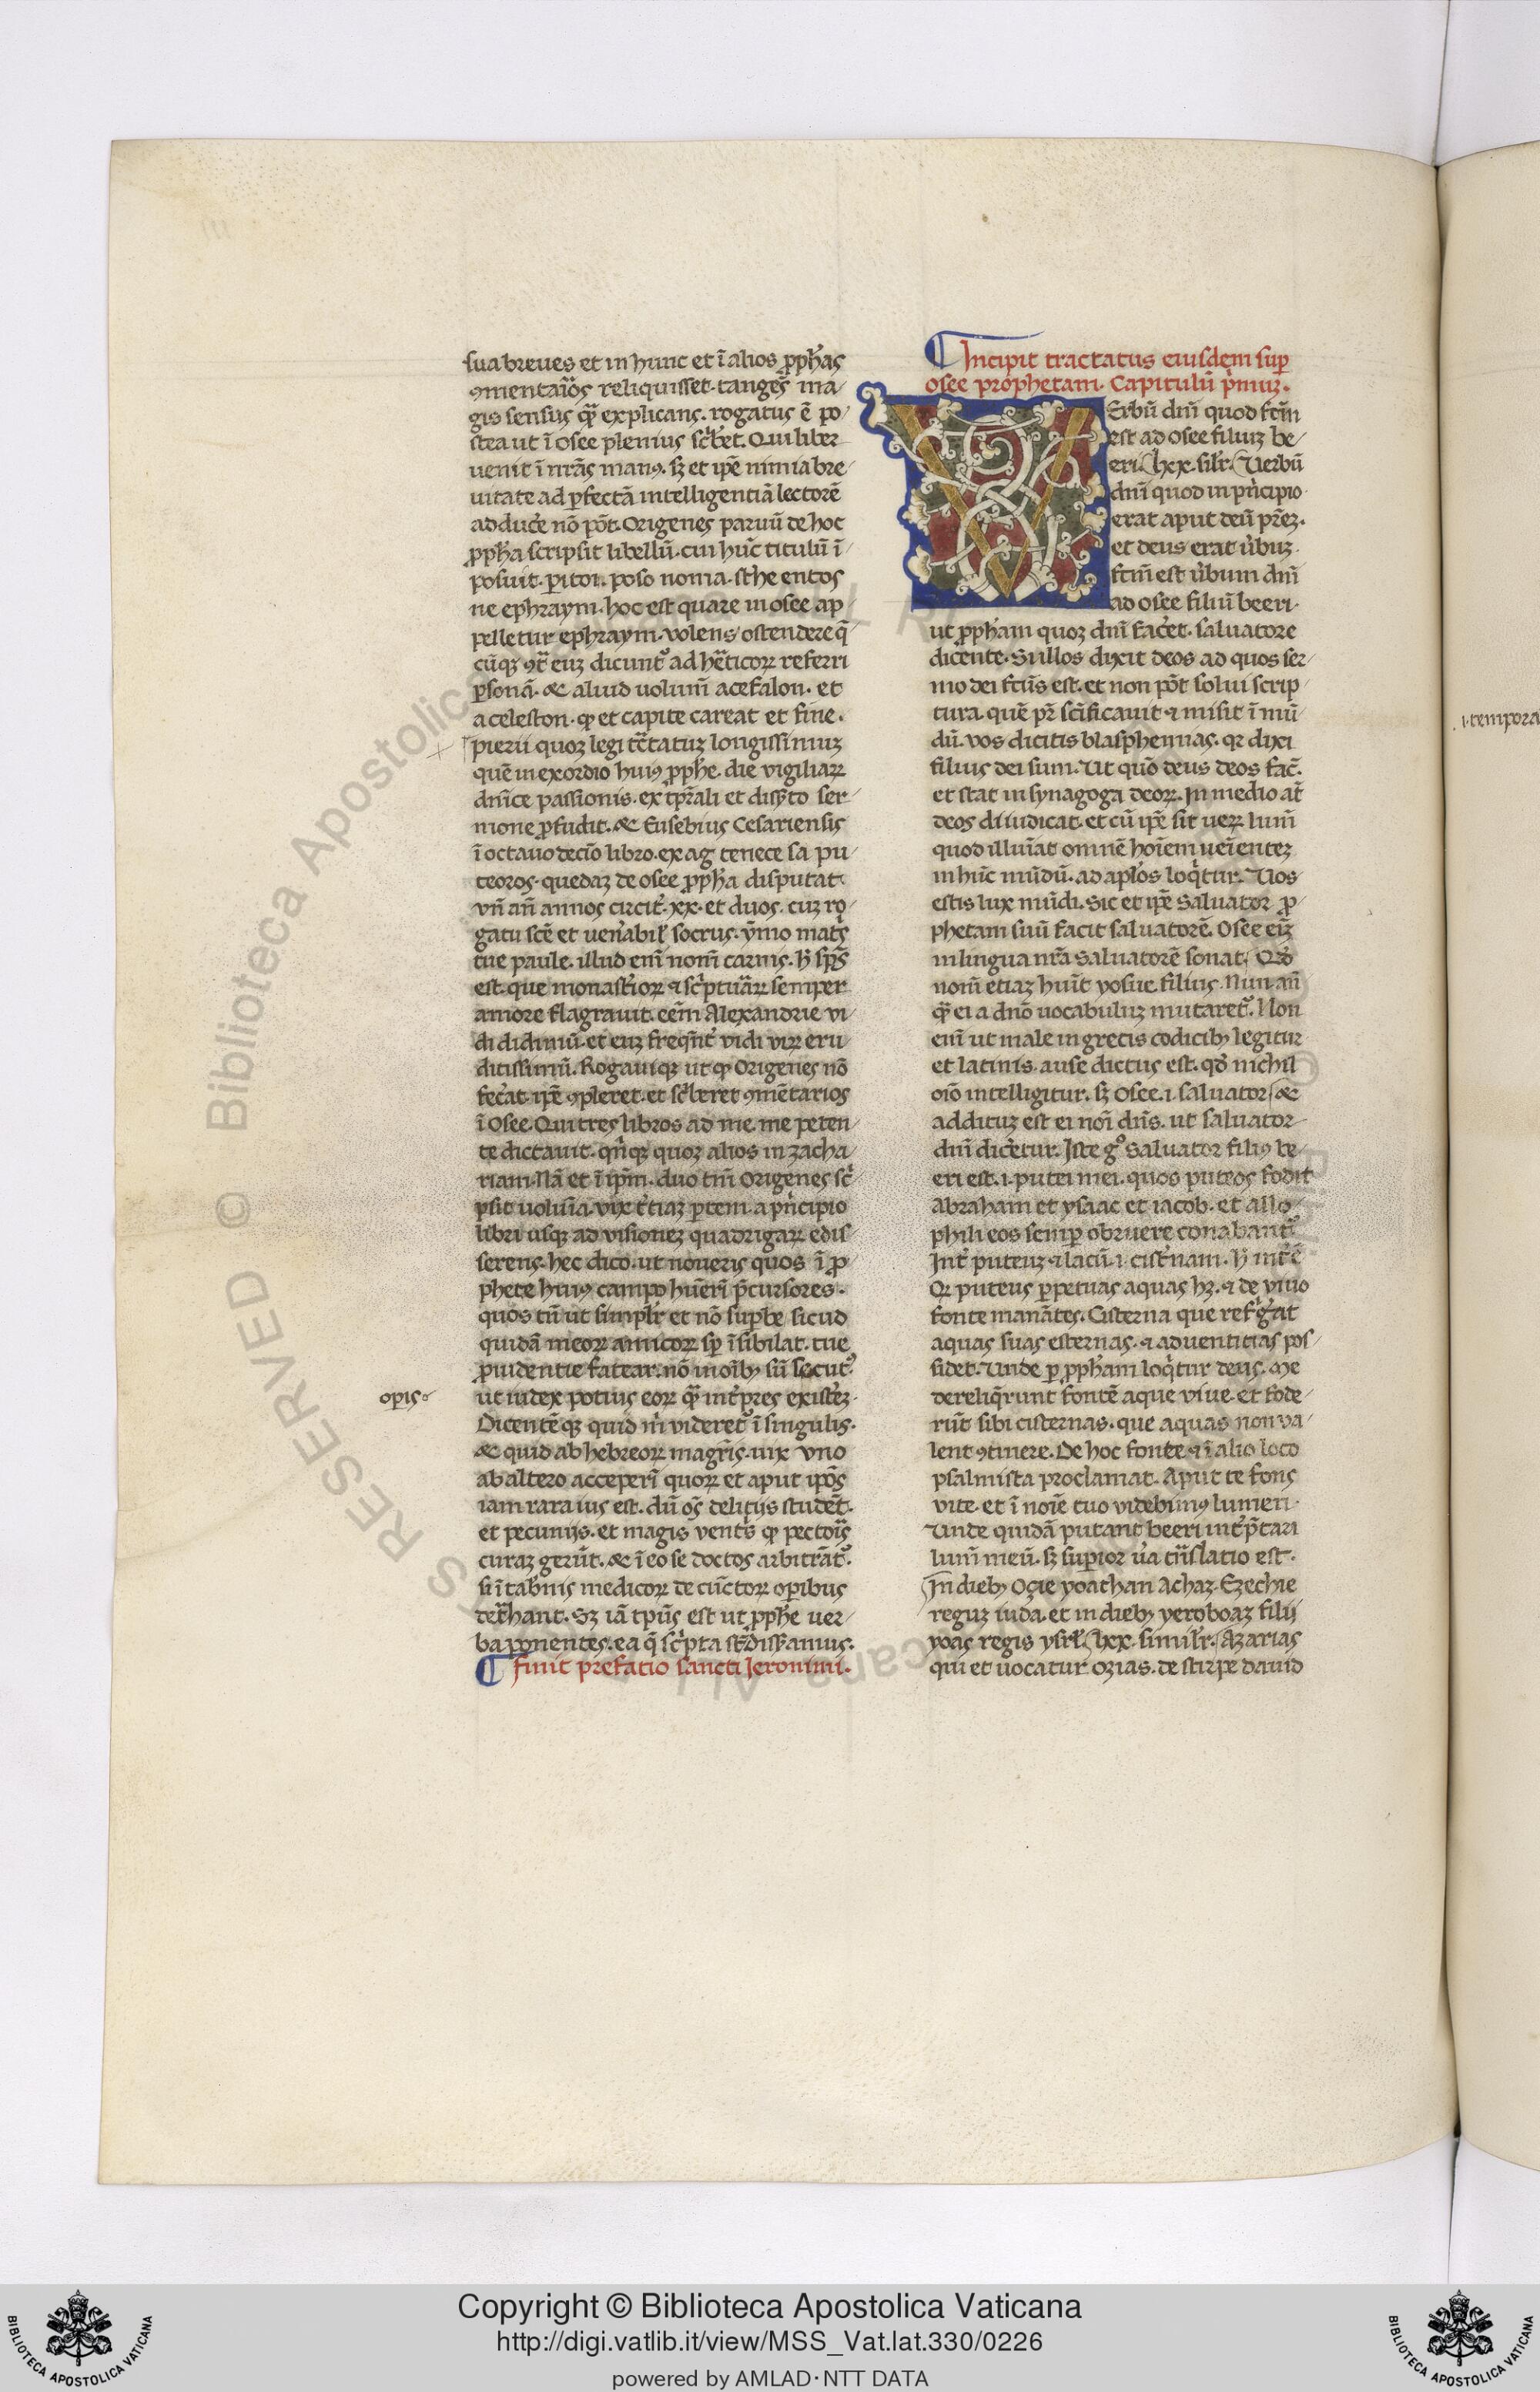 sua breues et in hunc et ĩ alios ꝓph̃as
ꝯmentar̃os reliquisset. tanges̃ ma-
gis sensus qᷓ explicans. rogatus ẽ po-
stea ut ĩ Osee plenius scͥb̃et. Qui liber
uenit ĩ nr̃as manꝰ. sꝫ et ip̃e nimia bre-
uitate ad ꝑfectã intelligentiã lectorẽ
adduc̃e nõ põt. Origenes paruũ de hoc
ꝓph̃a scripsit libellũ. cui hũc titulũ ĩ-
posuit. ꝑitoi. poso nomia. sthe entos
ne ephraym. hoc est quare in osee ap-
pelletur ephraym. uolens ostendere q̃
cũqꝫ ꝯtᷓ euꝫ dicunt᷑ ad h̃eticoꝝ referri
ꝑsonã. & aliud uolum̃ acefalon. et
aceleston. ꝙ et capite careat et fine.
pierii quoꝫ legi tc̃tatuꝫ longissimuꝫ
quẽ in exordio huiꝰ ꝓph̃e. die vigiliaꝝ
dñice passionis. ex tp̃rali et disꝑto ser-
mone ꝓfudit. & Eusebius Cesariensis
ĩ octauo decĩo libro. ex ag tenece sa pu-
teoros. quedaꝫ de osee ꝓph̃a disputat.
vñ añ annos circit̃. xx. et duos. cuꝫ ro-
gatu scẽ et uen̾abil̾ socrus. ỹmo mat̾s
tue paule. illud eni᷑ nom̃ carnis. h̾ sp̃s
est. que monast̾ioꝝ & scͥptuᷓꝝ semper
amore flagrauit. eẽm Alexandrie vi-
di didimũ. et euꝫ freqñt̾ vidi viꝝ eru-
ditissimũ. Rogauiqꝫ ut ꝙ Origenes nõ
fec̾at. ip̃e ꝯpleret. et scͥberet ꝯmẽtarios
ĩ Osee. Qui tres libros ad me. me peten-
te dictauit. qͥnqꝫ quoꝫ alios in zacha-
riam. Nã et ĩ ip̃m. duo tm̃ Origenes scͥ-
psit uolum̃ia. vix t̾tiaꝫ ꝑtem. a pͥncipio
libri usqꝫ ad visioneꝫ quadrigaꝝ edis-
serens. hec dico. ut noueris quos ĩ ꝓ-
phete huiꝰ campo hũeri᷑ p̃cursores.
quos tñ ut simplr̃ et nõ suꝑbe sicud
quidã meoꝝ amicoꝝ sꝑ ĩsibilat. tue
ꝓuidentie fatear. nõ in oĩbꝫ sũ secutꝰ
ut iudex potius eoꝝ qᷓ int̾pres existeꝫ.
opis
Dicentẽqꝫ quid mͥ videret᷑ ĩ singulis.
& quid ab hebreoꝝ magr̃is. uix vno
ab altero acceperi᷑ quoꝝ et aput ip̃os
iam rara ius est. dũ oẽs delitijs studẽt.
et pecunijs. et magis vent̾s ꝙ pectoı̃s
curaꝫ gerũt. & ĩ eo se doctos arbitrãt᷑.
si ĩ tab̾nis medicoꝝ de cũctoꝝ oꝑibus
det̾hant. Sꝫ iã tp̃us est ut ꝓph̃e uer-
ba ponentes. ea q̃ scͥpta st̃ diss̾amus.
¶ finit prefatio sancti Jeronimi.
¶ Incipit tractatus eiusdem suꝑ
osee prophetam. Capitulũ pͥmuꝫ.
VErbũ dñi quod fcm̃
est ad osee filiuꝫ be-
eri. lxx. silr̃. Verbũ
dñi quod in pͥncipio
erat aput deũ pr̃eꝫ.
et deus erat u̾buꝫ.
fcm̃ est u̾bum dñi
ad osee filiũ beeri.
ut ꝓph̃am quoꝫ dñi fac̾et. saluatore
dicente. Si illos dixit deos ad quos ser-
mo dei fcũs est. et non põt solui scrip-
tura. quẽ pr̃ scĩficauit & misit ĩ mũ-
dũ. vos dicitis blasphemas. qꝛ dixi
filius dei sum. Ut quõ deus deos fac̃.
et stat in synagoga deoꝝ. In medio aũt
deos diiudicat. et cũ ip̃e sit ueꝝ lum̃
quod illuĩat omnẽ hoĩem ueı̃enteꝫ
in hũc mũdũ. ad apl̃os loqͥtur. Uos
estis lux mũdi. Sic et ip̃e Saluator ꝓ-
phetam suũ facit saluatorẽ. Osee eı̃ꝫ
in lingua nr̃a Saluatorẽ sonat. Qd̾
nom̃ etiaꝫ huı̃t yosue filius Nun añ
qᷓ ei a dño uocabuluꝫ mutaret᷑. Non
eni᷑ ut male in grecis codicibꝫ legitur
et latinis. ause dictus est. qd̾ nichil
oĩo intelligitur. sꝫ Osee. i. saluator. &
additũ est ei noı̃ dñs. ut saluator
dñi dic̾etur. Iste gͦ Saluator filiꝰ be-
eri est. i. putei mei. quos puteos fodit
Abraham et ysaac et iacob. et allo-
phili eos semꝑ obruere conabant᷑.
Int̾ puteuꝫ & lacũ. i. cist̾nam. h̾ int̾ẽ.
Qꝛ puteus ꝑpetuas aquas hꝫ. & de viuo
fonte manãtes. Cisterna que refͥg̾at
aquas suas esternas. & aduentitias pos-
sidet. Unde ꝑ ꝓph̃am loqͥtur deus. Me
dereliq̃runt fontẽ aque viue. et fode-
rũt sibi cisternas. que aquas non va-
lent ꝯtinere. De hoc fonte & ĩ alio loco
psalmista proclamat. Aput te fons
vite. et ĩ noĩe tuo videbimꝰ lumen.
Unde quidã putant beeri int̾p̃tari
lum̃ meũ. sꝫ suꝑior u̾a tñslatio est.
In diebꝫ Oçie yoathan Achaꝫ. Ezechie
reguꝫ iuda. et in diebꝫ yeroboaꝫ filij
yoas regis ysrl̃. lxx. similr̃. Azarias
qui et uocatur ozias. de stirpe dauid
i. tempora
Copyright © Biblioteca Apostolica Vaticana
http://digi.vatlib.it/view/MSS_Vat.lat.330/0226
powered by AMLAD·NTT DATA
BIBLIOTECA APOSTOLICA VATICANA
BIBLIOTECA APOSTOLICA VATICANA